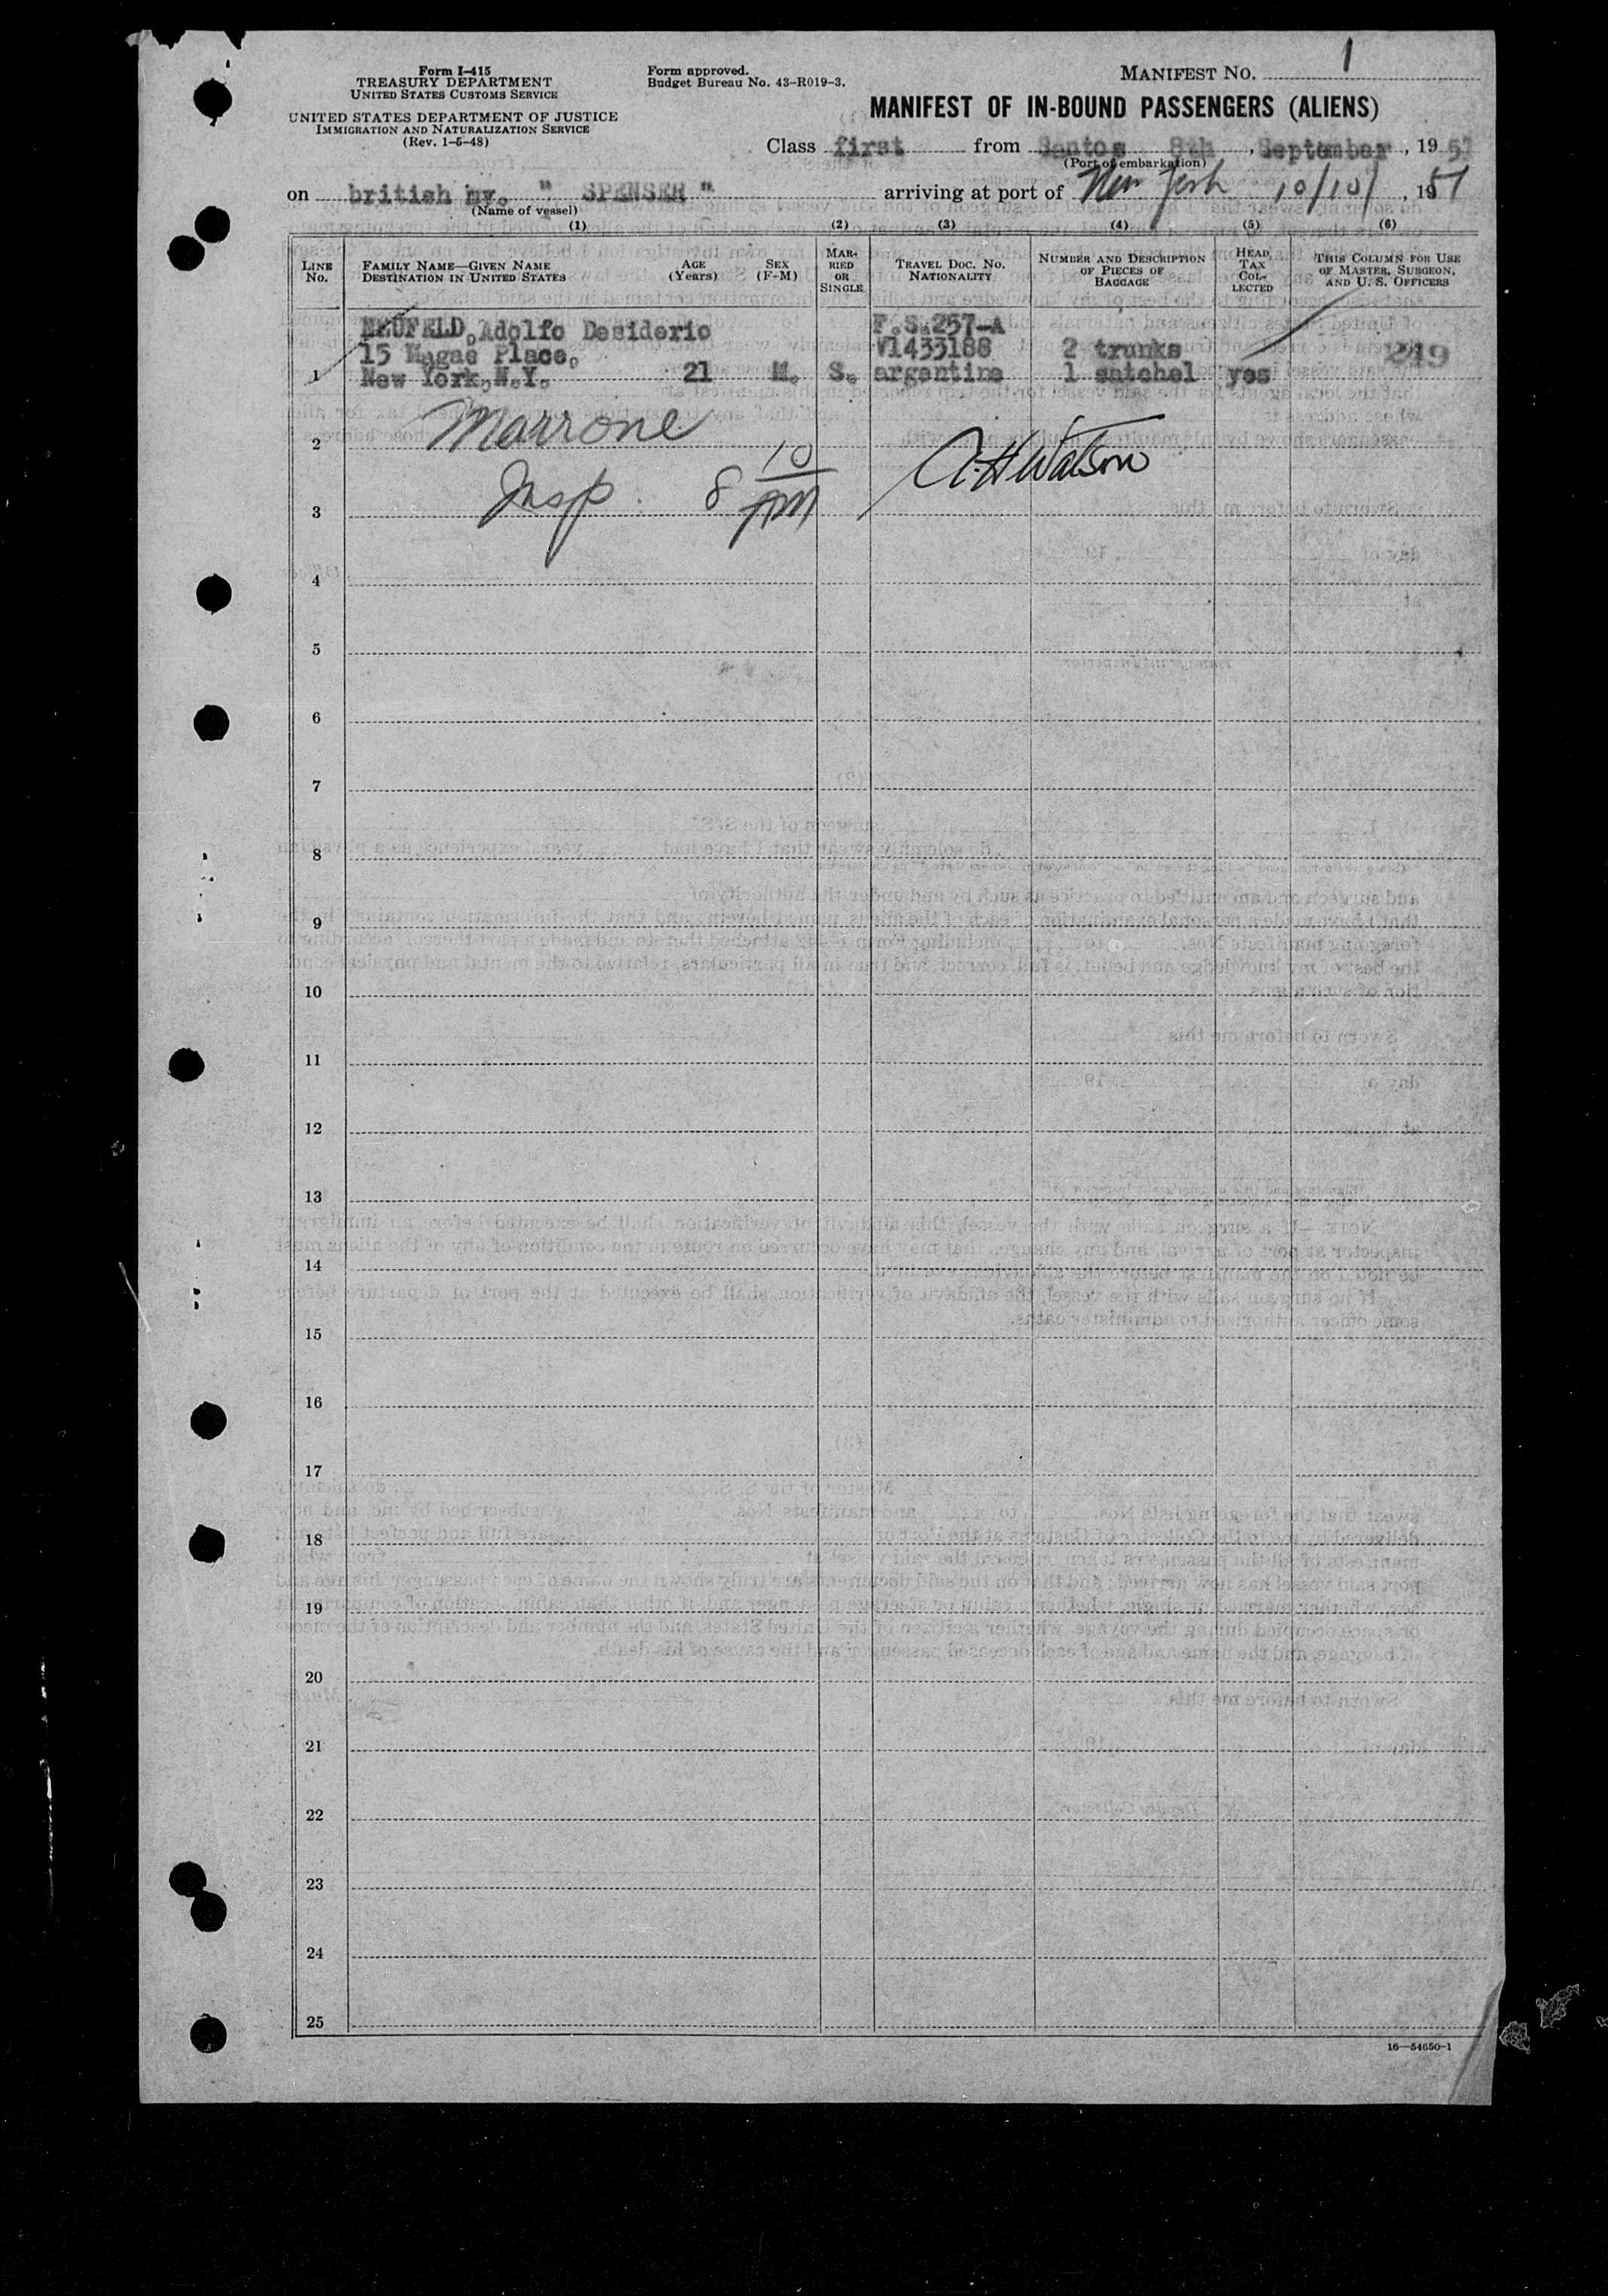 Form I-415
TREASURY DEPARTMENT
UNITED STATES CUSTOMS SERVICE
UNITED STATES DEPARTMENT OF JUSTICE
IMMIGRATION AND NATURALIZATION SERVICE
(Rev. 1-5-48)
Form approved.
Budget Bureau No. 43-R019-3.
MANIFEST NO. 1
MANIFEST OF IN-BOUND PASSENGERS (ALIENS)
Class first from Santos 8th, September, 1951
(Port of embarkation)
on british mv. " SPENSER " arriving at port of New York 10/10/, 1951
(Name of vessel)
(1) (2) (3) (4) (5) (6)
LINE No.
FAMILY NAME—GIVEN NAME
DESTINATION IN UNITED STATES
AGE (Years)
SEX (F-M)
MARRIED OR SINGLE
TRAVEL DOC. NO. NATIONALITY
NUMBER AND DESCRIPTION OF PIECES OF BAGGAGE
HEAD TAX COLLECTED
THIS COLUMN FOR USE OF MASTER, SURGEON, AND U. S. OFFICERS
NEUFELD, Adolfo Desiderio F.S.257-A
15 Magas Place, V1433188 2 trunks 249
1 New York, N.Y. 21 M. S. argentine 1 satchel yes
2 Marrone
A. H Watson
3 Insp. 8 10 PM
4
5
6
7
8
9
10
11
12
13
14
15
16
17
18
19
20
21
22
23
24
25
16—54650-1